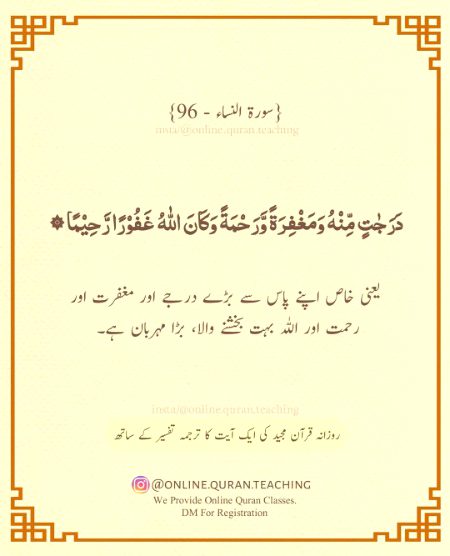 {سورۃ النساء - 96}
insta/@online.quran.teaching
دَرَجٰتٍ مِّنْهُ وَمَغْفِرَةً وَّرَحْمَةً وَكَانَ اللّٰهُ غَفُوْرًا رَّحِيْمًا ۞
یعنی خاص اپنے پاس سے بڑے درجے اور مغفرت اور
رحمت اور اللہ بہت بخشنے والا، بڑا مہربان ہے۔
insta/@online.quran.teaching
روزانہ قرآن مجید کی ایک آیت کا ترجمہ تفسیر کے ساتھ
@ONLINE.QURAN.TEACHING
We Provide Online Quran Classes.
DM For Registration